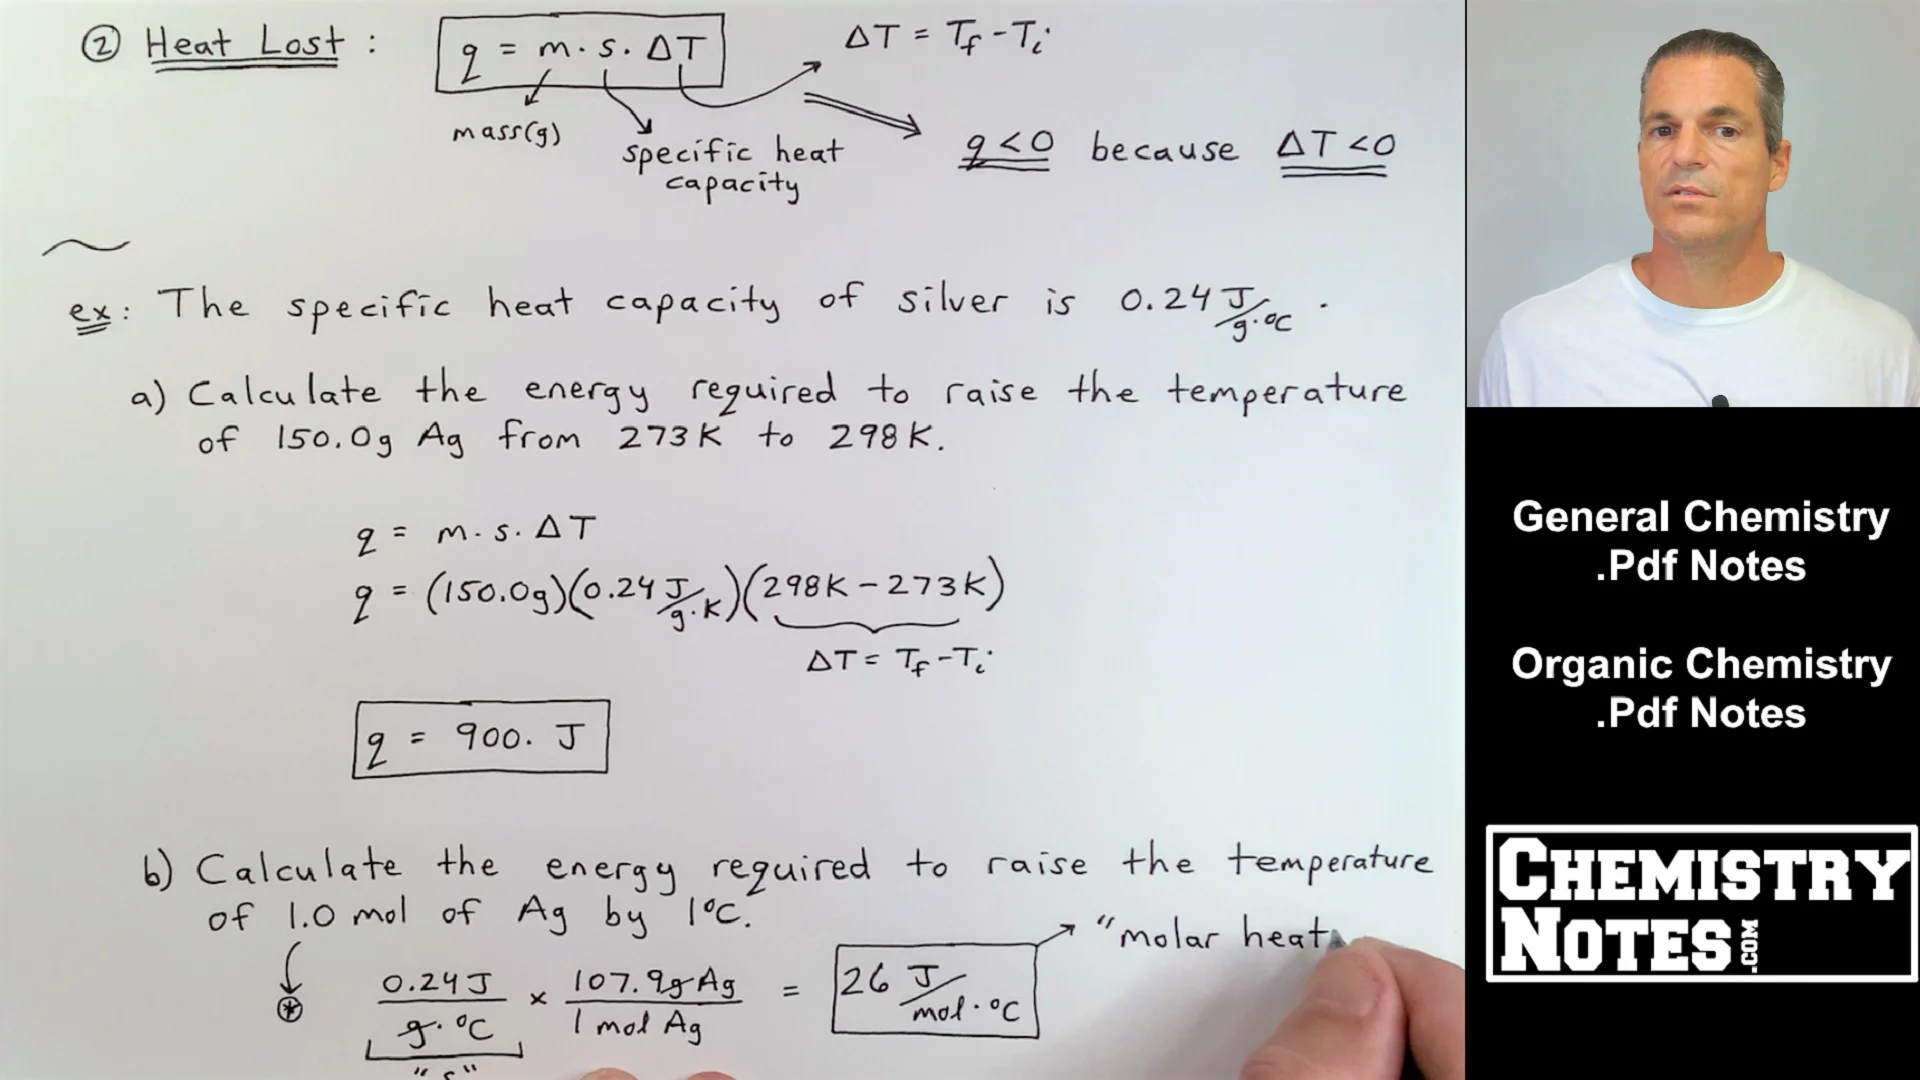 ② Heat Lost :
q = m · s · ΔT
ΔT = Tf - Ti
mass(g)
specific heat
capacity
q < 0 because ΔT < 0
ex: The specific heat capacity of silver is 0.24 J/g·°C .
a) Calculate the energy required to raise the temperature
of 150.0g Ag from 273K to 298K.
q = m · s · ΔT
q = (150.0g)(0.24 J/g·K)(298K - 273K)
ΔT = Tf - Ti
q = 900. J
b) Calculate the energy required to raise the temperature
of 1.0 mol of Ag by 1°C.
"molar heat
0.24 J / g·°C × 107.9g Ag / 1 mol Ag = 26 J/mol·°C
"s"
General Chemistry
.Pdf Notes
Organic Chemistry
.Pdf Notes
CHEMISTRY
NOTES.COM